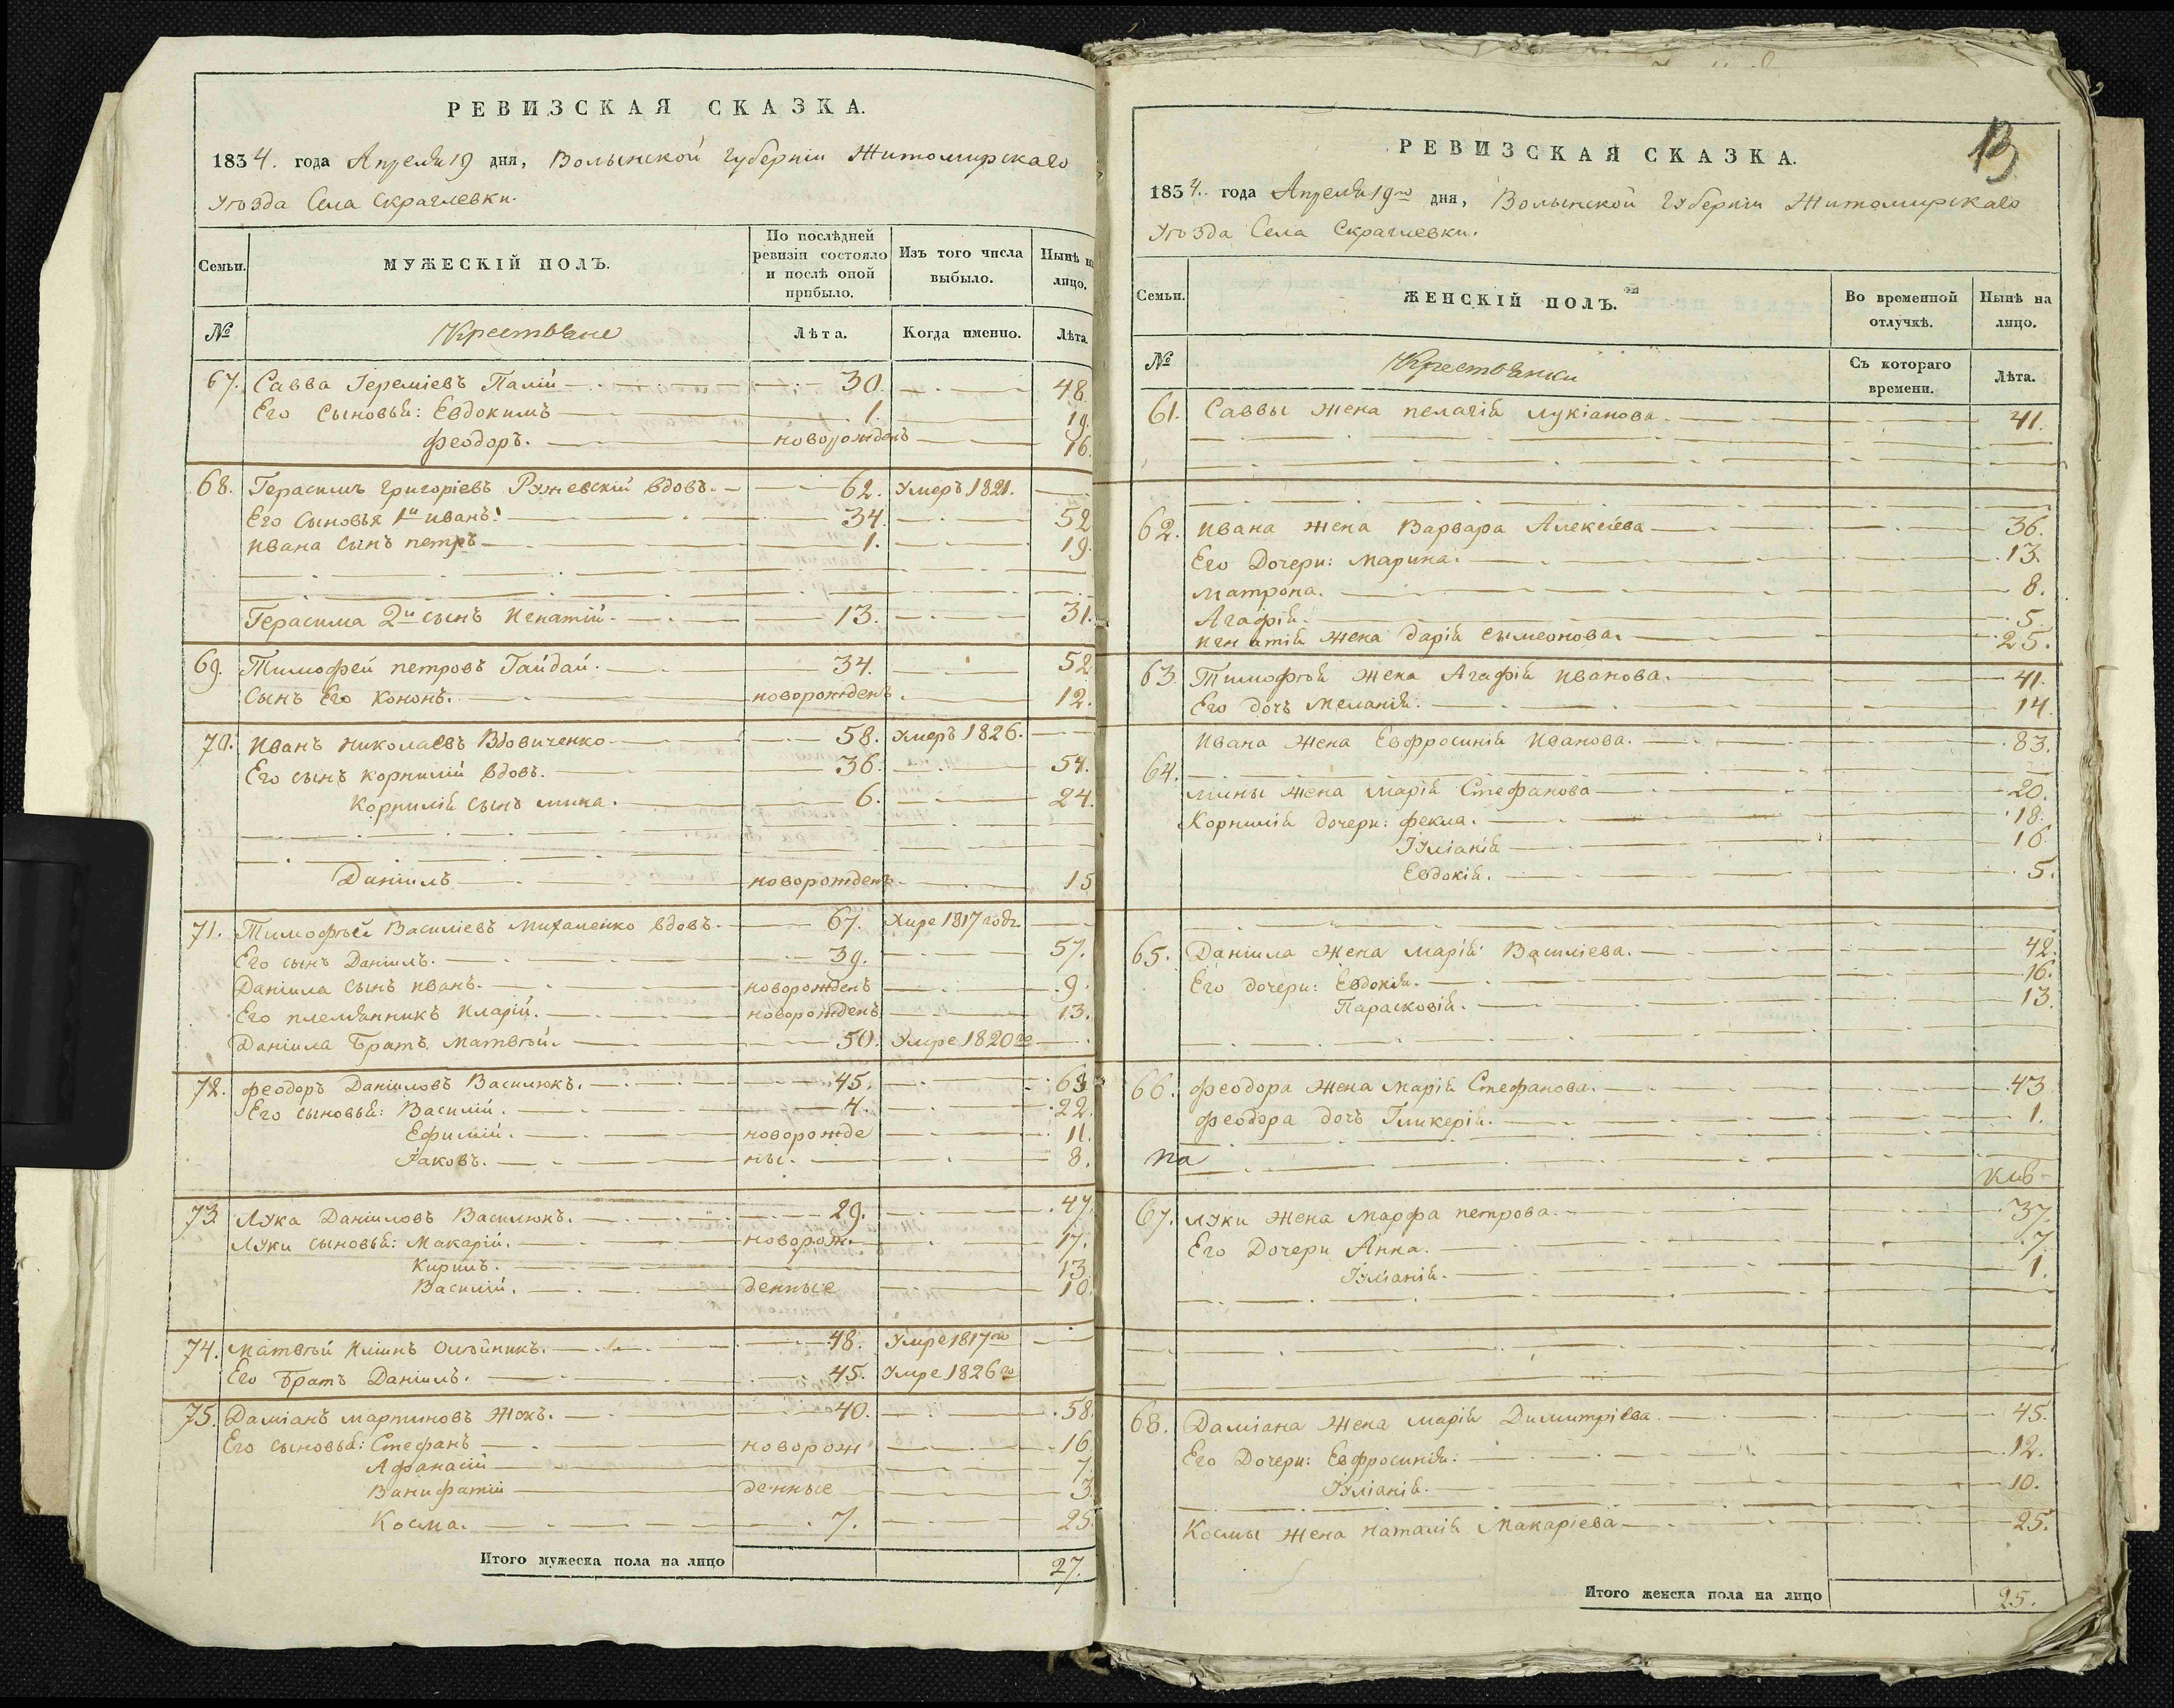 РЕВИЗСКАЯ СКАЗКА.
1834. года Апреля 19 дня, Волынской Губерніи Житомирскаго
Уѣзда Села Скраглевки.
Семьи. МУЖЕСКІЙ ПОЛЪ. По послѣдней ревизіи состояло и послѣ оной прибыло. Изъ того числа выбыло. Нынѣ на лицо.
№ Крестьяне Лѣта. Когда именно. Лѣта.
67. Савва Іереміевъ Палій 30. 48.
Его Сыновья: Евдокимъ 1. 19.
Феодоръ. новорожденъ 16.
68. Герасимъ Григоріевъ Ружевскій вдовъ. 62. Умеръ 1821.
Его Сыновья 1й Иванъ. 34. 52
Ивана Сынъ Петръ 1. 19.
Герасима 2й сынъ Игнатій. 13. 31.
69. Тимофей Петровъ Гайдай. 34. 52
Сынъ Его Кононъ. новорожденъ. 12.
70. Иванъ Николаевъ Вдовиченко 58. Умеръ 1826.
Его сынъ Корнилій вдовъ. 36. 54.
Корнилія сынъ Мина. 6. 24.
Даніилъ новорожденъ 15
71. Тимофѣй Василіевъ Михаленко вдовъ. 67. Умре 1817 годъ
Его сынъ Даніилъ. 39. 57.
Даніила Сынъ Иванъ. новорожденъ 9.
Его племянникъ Иларій. новорожденъ 13.
Даніила Братъ Матвѣй. 50. Умре 1820го
72. Феодоръ Даніиловъ Василюкъ. 45. 63
Его сыновья: Василій. 4. 22.
Ефимій. новорожде 11.
Іаковъ. ны. 8.
73. Лука Даніиловъ Василюкъ. 29. 47.
Луки сыновья: Макарій. новорож 17.
Кирилъ. 13
Василій. денные 10.
74. Матвѣй Иліинъ Олѣйникъ. 48. Умре 1817го
Его Братъ Даніилъ. 45. Умре 1826го
75. Даміанъ Мартиновъ Жукъ. 40. 58.
Его сыновья: Стефанъ новорож 16
Афанасій 7.
Ванифатій денные 3.
Косма. 7. 25.
Итого мужеска пола на лицо 27.
13
РЕВИЗСКАЯ СКАЗКА.
1834. года Апреля 19го дня, Волынской Губерніи Житомирскаго
Уѣзда Села Скраглевки.
Семьи. ЖЕНСКІЙ ПОЛЪ. Во временной отлучкѣ. Нынѣ на лицо.
№ Крестьянки Съ котораго времени. Лѣта.
61. Саввы жена Пелагія Лукіанова. 41.
62. Ивана жена Варвара Алексіева 36.
Его Дочери: Марина. 13.
Матрона. 8.
Агафія. 5.
Игнатія жена Дарія Сымеонова. 25.
63. Тимофѣя жена Агафія Иванова. 41.
Его дочъ Меланія. 14.
Ивана жена Евфросинія Иванова. 83.
64.
Мины жена Марія Стефанова 20.
Корнилія дочери: Фекла. 18.
Іуліанія 16
Евдокія. 5.
65. Даніила жена Марія Василіева. 42.
Его дочери: Евдокія. 16.
Парасковія. 13.
66. Феодора жена Марія Стефанова. 43
Феодора дочъ Гликерія. 1.
67. Луки жена Марфа Петрова. 37.
Его Дочери Анна. 7.
Іуліанія. 1.
68. Даміана жена Марія Димитріева. 45.
Его Дочери: Евфросинія. 12.
Іуліанія. 10.
Космы жена Наталія Макаріева 25.
Итого женска пола на лицо 25.